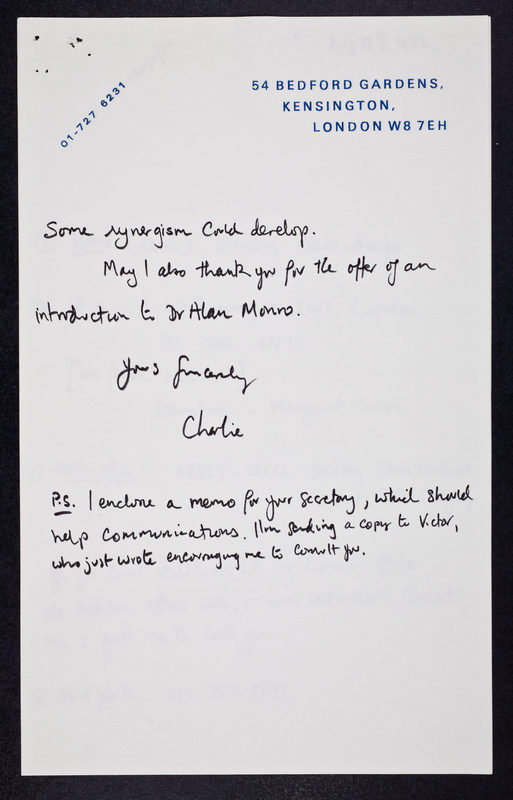 01-727 6231
54 BEDFORD GARDENS,
KENSINGTON,
LONDON W8 7EH
Some synergism could develop.
May I also thank you for the offer of an
introduction to Dr Alan Monro.
Yours Sincerely
Charlie
P.S. I enclose a memo for your secretary, which should
help communications. I'm sending a copy to Victor,
who just wrote encouraging me to consult you.